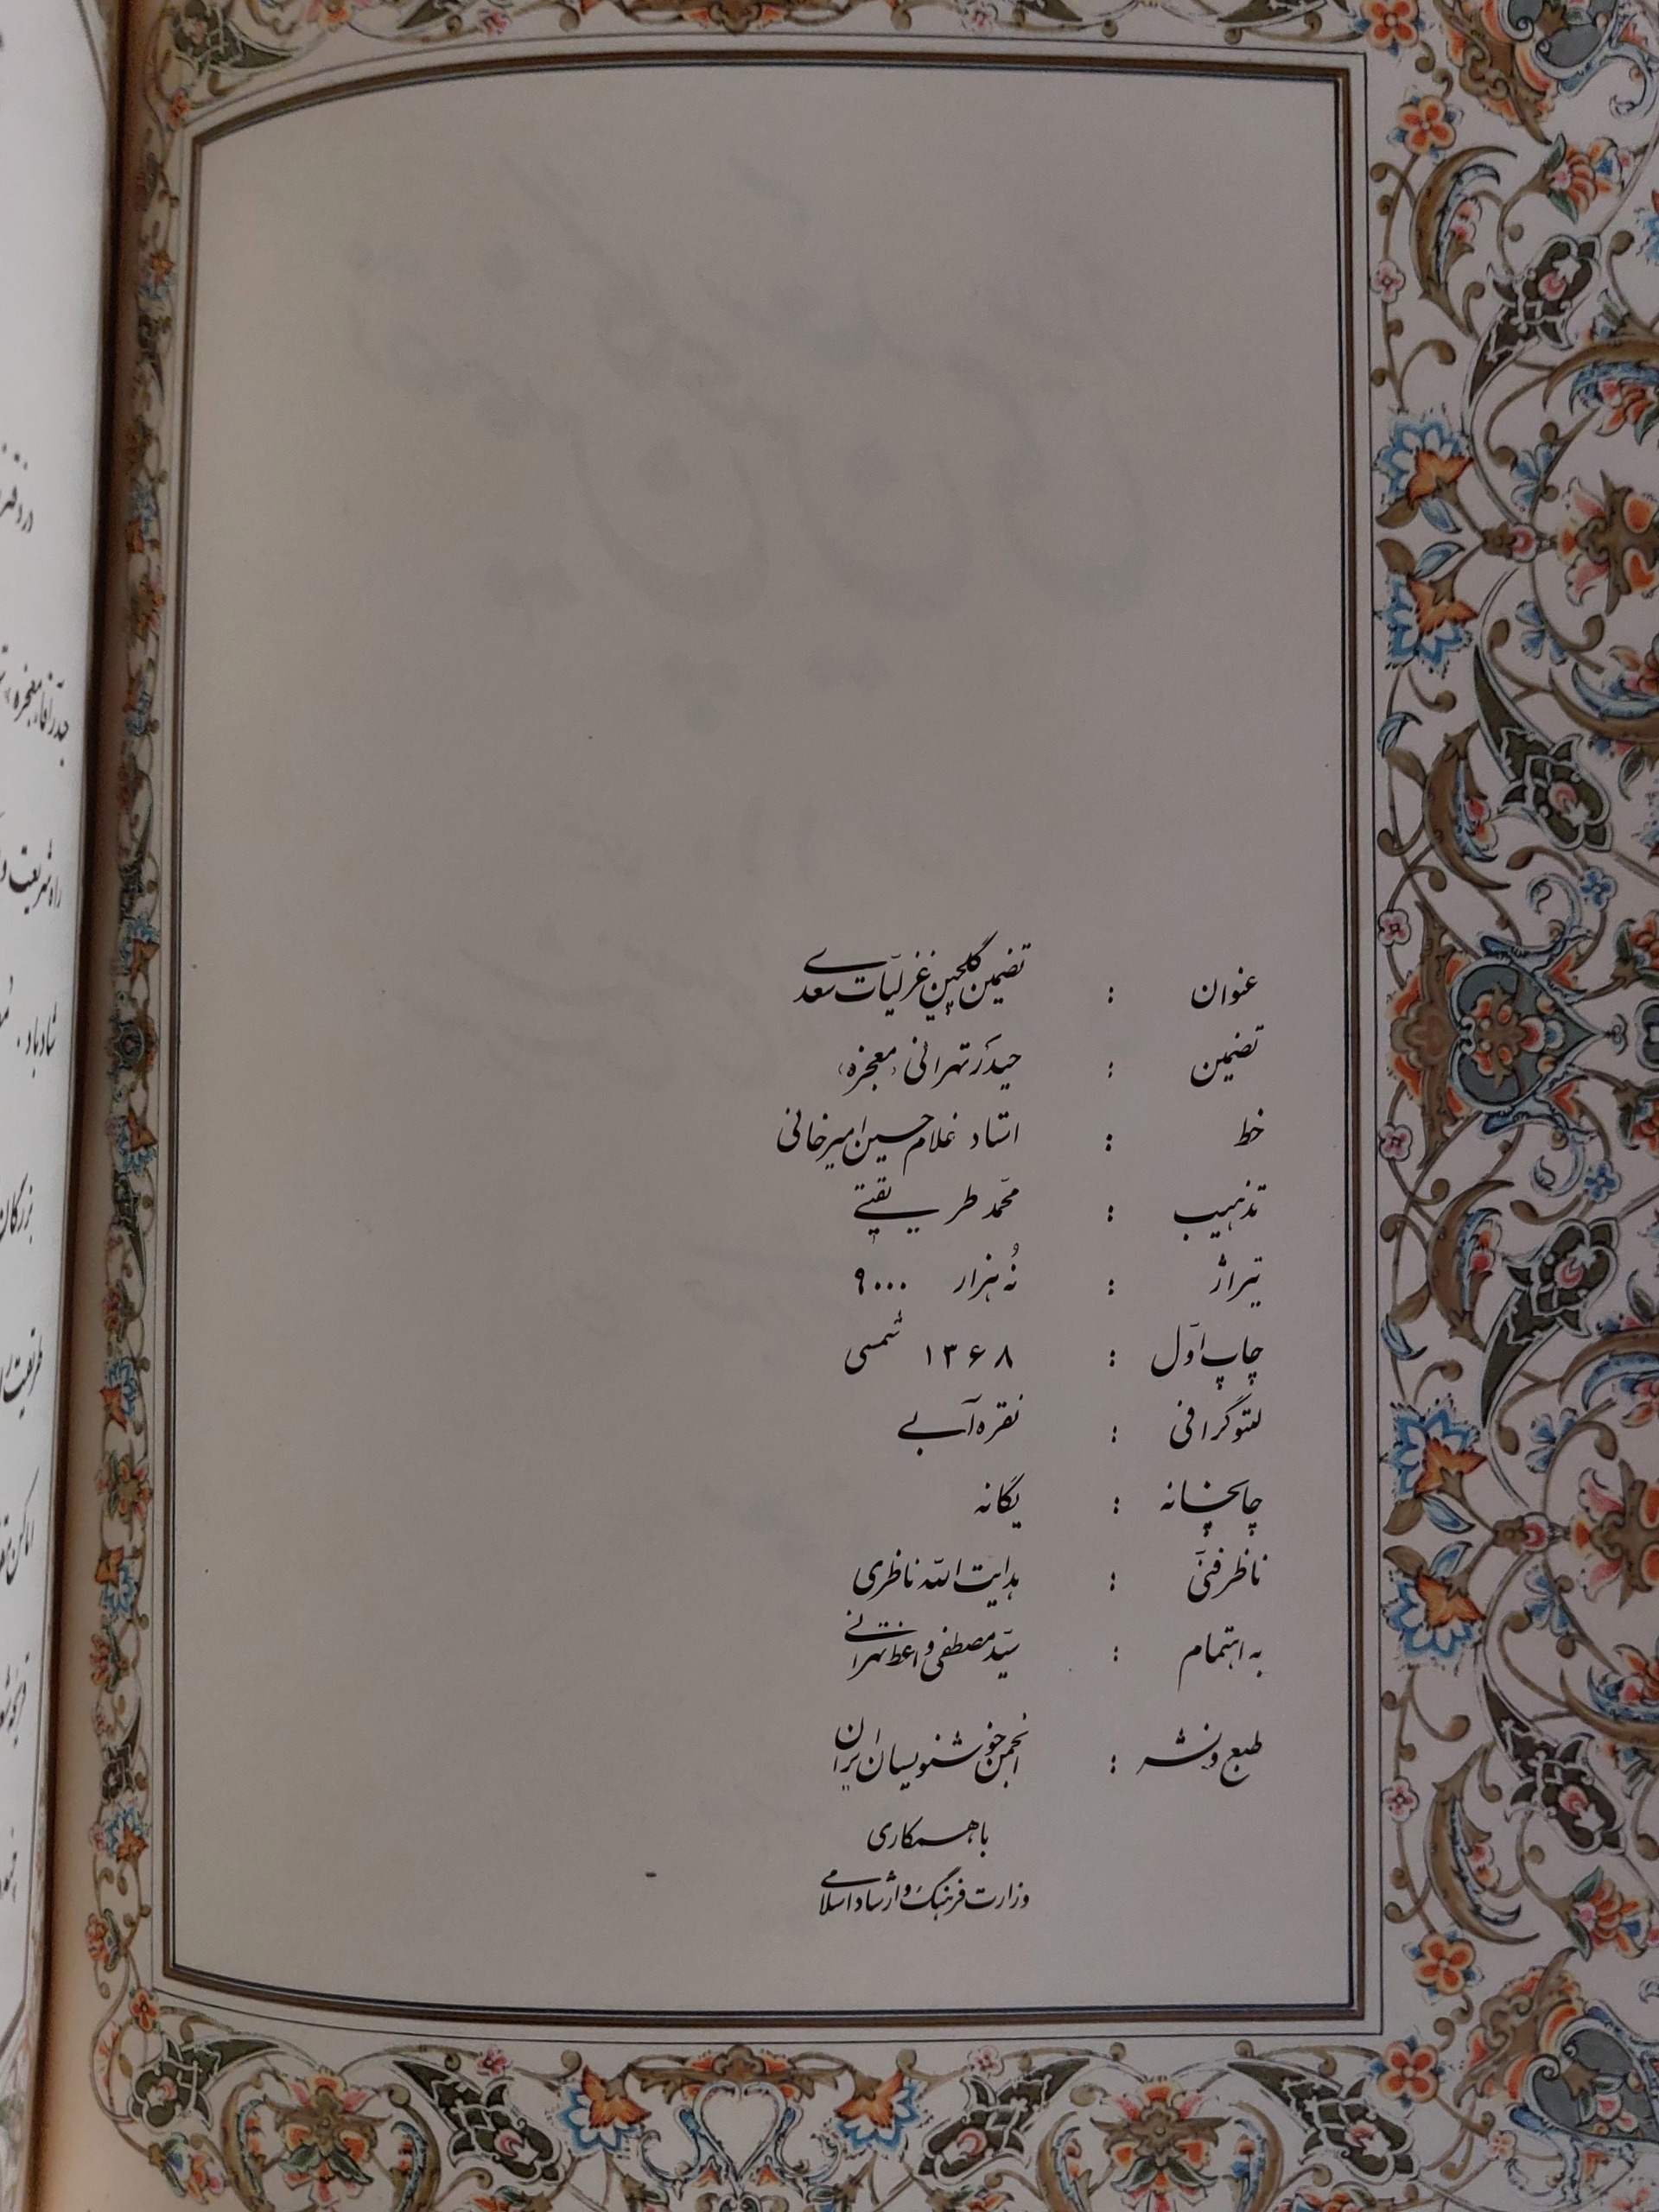 عنوان : تضمین گلچین غزلیّات سعدی
تضمین : حیدر تهرانی «معجزه»
خط : استاد غلامحسین امیرخانی
تذهیب : محمّد طریقیتی
تیراژ : نُه هزار ۹۰۰۰
چاپ اوّل : ۱۳۶۸ شمسی
لیتوگرافی : نقره آبی
چاپخانه : یگانه
ناظر فنّی : هدایت الله ناظری
به اهتمام : سیّد مصطفی واعظ تهرانی
طبع و نشر : انجمن خوشنویسان ایران
با همکاری
وزارت فرهنگ و ارشاد اسلامی
راه شریعت و
شاد باد .
بزرگان